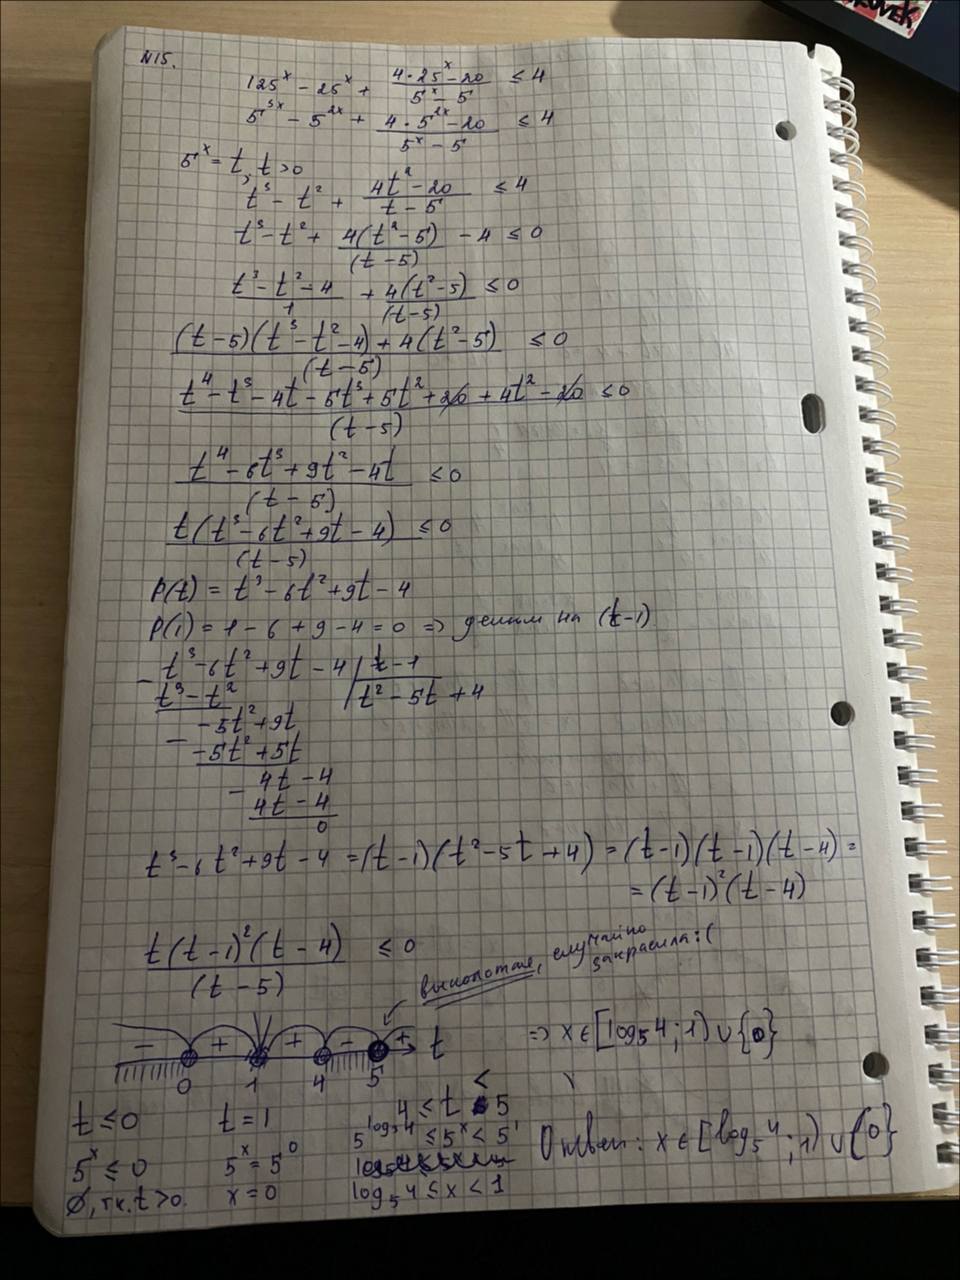 N15.
125^x - 25^x + (4·25^x - 20)/(5^x - 5) ≤ 4
5^{3x} - 5^{2x} + (4·5^{2x} - 20)/(5^x - 5) ≤ 4
5^x = t, t > 0
t³ - t² + (4t² - 20)/(t - 5) ≤ 4
t³ - t² + 4(t² - 5)/(t - 5) - 4 ≤ 0
(t³ - t² - 4)/1 + 4(t² - 5)/(t - 5) ≤ 0
((t - 5)(t³ - t² - 4) + 4(t² - 5))/(t - 5) ≤ 0
(t⁴ - t³ - 4t - 5t³ + 5t² + 20 + 4t² - 20)/(t - 5) ≤ 0
(t⁴ - 6t³ + 9t² - 4t)/(t - 5) ≤ 0
t(t³ - 6t² + 9t - 4)/(t - 5) ≤ 0
P(t) = t³ - 6t² + 9t - 4
P(1) = 1 - 6 + 9 - 4 = 0 => делим на (t-1)
- t³ - 6t² + 9t - 4 | t - 1
t³ - t² | t² - 5t + 4
- 5t² + 9t
- -5t² + 5t
- 4t - 4
4t - 4
0
t³ - 6t² + 9t - 4 = (t - 1)(t² - 5t + 4) = (t-1)(t-1)(t-4) =
= (t-1)²(t-4)
t(t-1)²(t-4)/(t-5) ≤ 0
выколотая, случайно закрасила :(
- + + - + t
0 1 4 5
=> x ∈ [log₅4; 1) ∪ {0}
t ≤ 0 t = 1 4 ≤ t < 5
5^x ≤ 0 5^x = 5^0 5^{log₅4} ≤ 5^x < 5^1
∅, т.к. t > 0. x = 0 log₅4 ≤ x < 1
Ответ: x ∈ [log₅4; 1) ∪ {0}